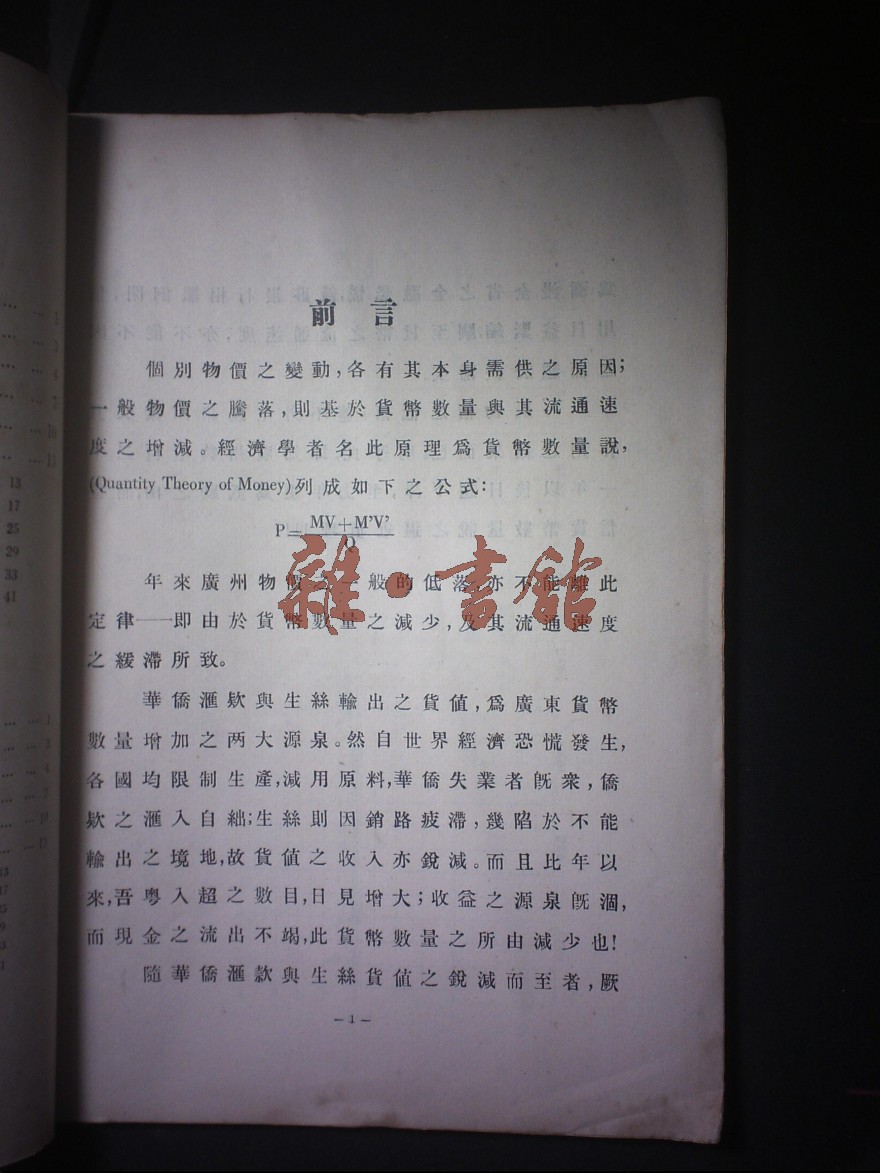 前言
個別物價之變動，各有其本身需供之原因；
一般物價之騰落，則基於貨幣數量與其流通速
度之增減。經濟學者名此原理爲貨幣數量說，
(Quantity Theory of Money)列成如下之公式：
P=
MV+M'V'
Q
年來廣州物價之一般的低落亦不能離此
定律──即由於貨幣數量之減少，及其流通速度
之緩滯所致。
華僑滙欵與生絲輸出之貨値，爲廣東貨幣
數量增加之两大源泉。然自世界經濟恐慌發生，
各國均限制生產，減用原料，華僑失業者旣衆，僑
欵之滙入自絀；生絲則因銷路疲滯，幾陷於不能
輸出之境地，故貨値之收入亦銳減。而且比年以
來，吾粵入超之數目，日見增大；收益之源泉旣涸，
而現金之流出不竭，此貨幣數量之所由減少也！
隨華僑滙款與生絲貨値之銳減而至者，厥
－1－
雜·書館
1
3
4
7
10
13
13
17
25
29
33
41